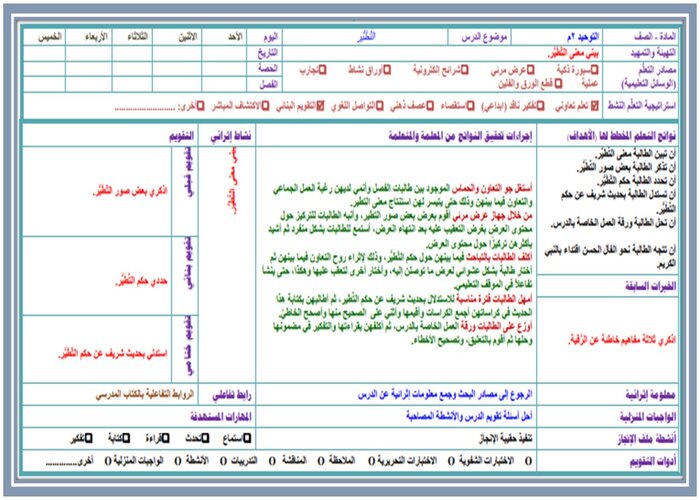 المادة - الصف التوحيد ٢م موضوع الدرس التَّطَيُّر اليوم الأحد الاثنين الثلاثاء الأربعاء الخميس
التهيئة والتمهيد بيني معنى التَّطَيُّر. التاريخ
مصادر التعلم (الوسائل التعليمية) سبورة ذكية عرض مرئي شرائح إلكترونية أوراق نشاط تجارب الحصة
عملية قطع الورق والفلين الفصل
استراتيجية التعلم النشط تعلم تعاوني تفكير ناقد (ابداعي) استقصاء عصف ذهني التواصل اللغوي التقويم البنائي الاكتشاف المباشر أخرى: ........................
نواتج التعلم المخطط لها (الأهداف) إجراءات تحقيق النواتج من المعلمة والمتعلمة نشاط إثرائي التقويم
أن تبين الطالبة معنى التَّطَيُّر.
أن تذكر الطالبة بعض صور التَّطَيُّر.
أن تحدد الطالبة حكم التَّطَيُّر.
أن تستدل الطالبة بحديث شريف عن حكم التَّطَيُّر.
أن تحل الطالبة ورقة العمل الخاصة بالدرس.
أن تتجه الطالبة نحو الفال الحسن اقتداء بالنبي الكريم.
الخبرات السابقة
اذكري ثلاثة مفاهيم خاطئة عن الرُّقية.
أستغل جو التعاون والحماس الموجود بين طالبات الفصل وأنمي لديهن رغبة العمل الجماعي
والتعاون فيما بينهن وذلك حتى يتيسر لهن استنتاج معنى التطير.
من خلال جهاز عرض مرئي أقوم بعرض بعض صور التطير، وأنبه الطالبات للتركيز حول
محتوى العرض بغرض التعقيب عليه بعد انتهاء العرض، أستمع للطالبات بشكل منفرد ثم أشيد
بأكثرهن تركيزًا حول محتوى العرض.
أكلف الطالبات بالتباحث فيما بينهن حول حكم التَّطَيُّر، وذلك لإثراء روح التعاون فيما بينهن ثم
أختار طالبة بشكل عشوائي لعرض ما توصلن إليه، وأختار أخرى لتعقب عليها وهكذا، حتى ينشأ
تفاعلاً في الموقف التعليمي.
أمهل الطالبات فترة مناسبة للاستدلال بحديث شريف عن حكم التَّطَيُّر، ثم أطالبهن بكتابة هذا
الحديث في كراساتهن أجمع الكراسات وأقيمها وأثني على الصحيح منها وأصحح الخاطئ.
أوزع على الطالبات ورقة العمل الخاصة بالدرس، ثم أكلفهن بقراءتها والتفكير في مضمونها
وحلها ثم أقوم بالتعليق، وتصحيح الأخطاء.
بيني معنى التَّطَيُّر.
تقويم قبلي
اذكري بعض صور التَّطَيُّر.
تقويم بنائي
حددي حكم التَّطَيُّر.
تقويم ختامي
استدلي بحديث شريف عن حكم التَّطَيُّر.
معلومة إثرائية الرجوع إلى مصادر البحث وجمع معلومات إثرائية عن الدرس رابط تفاعلي الروابط التفاعلية بالكتاب المدرسي
الواجبات المنزلية أحل أسئلة تقويم الدرس والأنشطة المصاحبة المهارات المستهدفة
أنشطة ملف الإنجاز تنفيذ حقيبة الإنجاز استماع تحدث قراءة كتابة تفكير
أدوات التقويم () الاختبارات الشفوية () الاختبارات التحريرية () الملاحظة () المناقشة () التدريبات () الأنشطة () الواجبات المنزلية () أخرى..............